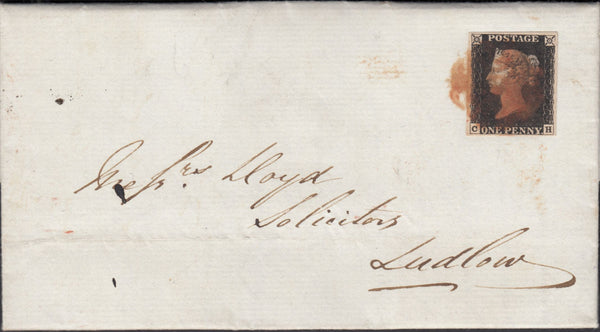 POSTAGE
C H
ONE PENNY
Messrs Lloyd
Solicitors
Ludlow